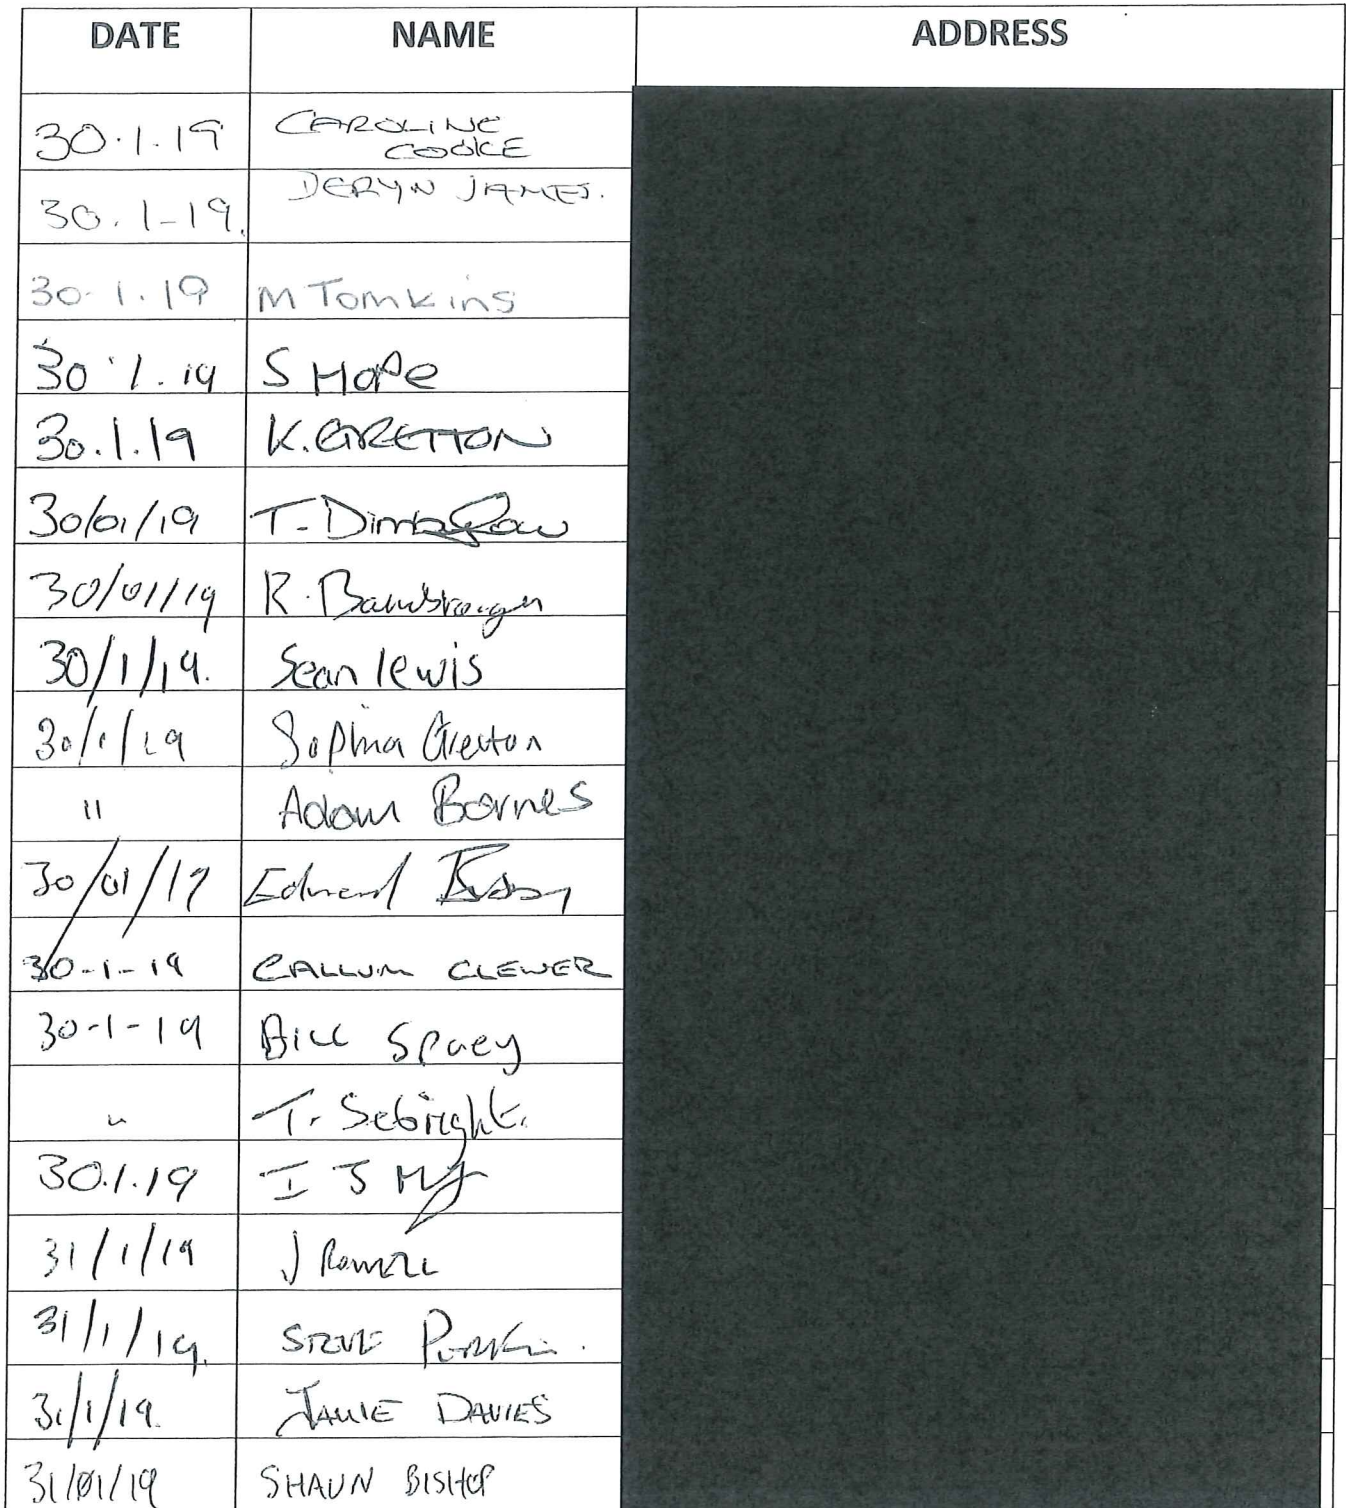 DATE NAME ADDRESS
30.1.19 CAROLINE
COOKE
30.1-19. DERYN JAMES.
30.1.19 M Tomkins
30.1.19 S HOPE
30.1.19 K. GRETTON
30/01/19 T.
30/01/19 R.
30/1/19. Sean lewis
30/1/19 Sophia Gretton
" Adam Barnes
30/01/19 Edward
30-1-19 CALLUM CLEWER
30-1-19 BILL Spuey
" T. Sebright.
30.1.19 I J
31/1/19 J
31/1/19. STEVE
31/1/19. JAMIE DAVIES
31/01/19 SHAUN BISHOP